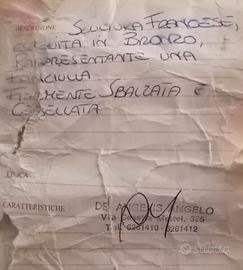 DESCRIZIONE SCULTURA FRANCESE,
ESEGUITA IN BRONZO,
RAPPRESENTANTE UNA
FANCIULLA
FINEMENTE SBALZATA E
CESELLATA
EPOCA
CARATTERISTICHE
DE ANGELIS ANGELO
Via 325
Tel. 6261410 - 6261412
subito